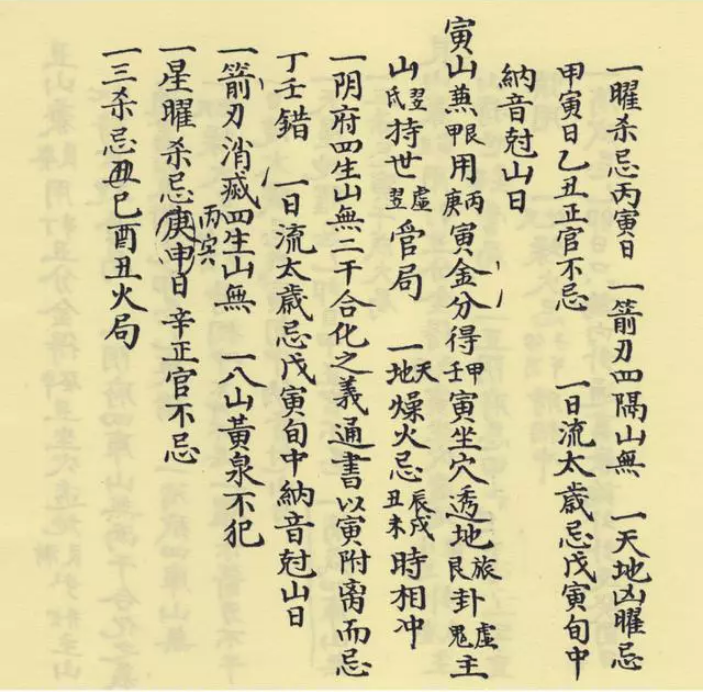 一曜杀忌丙寅日　一箭刃四隔山無　一天地凶曜忌
甲寅日乙丑正官不忌　一日流太歲忌戊寅旬中
納音尅山日
寅山兼甲艮用丙庚寅金分得甲壬寅坐穴透地旅艮卦虛鬼主
山翌氐持世虛翌管局　一天地燥火忌辰戌丑未時相冲
一阴府四生山無二干合化之義通書以寅附离而忌
丁壬錯　一日流太歲忌戊寅旬中納音尅山日
一箭刃消滅四生山無　一八山黃泉不犯
一星曜杀忌庚申日辛正官不忌
丙寅
一三杀忌丑巳酉丑火局